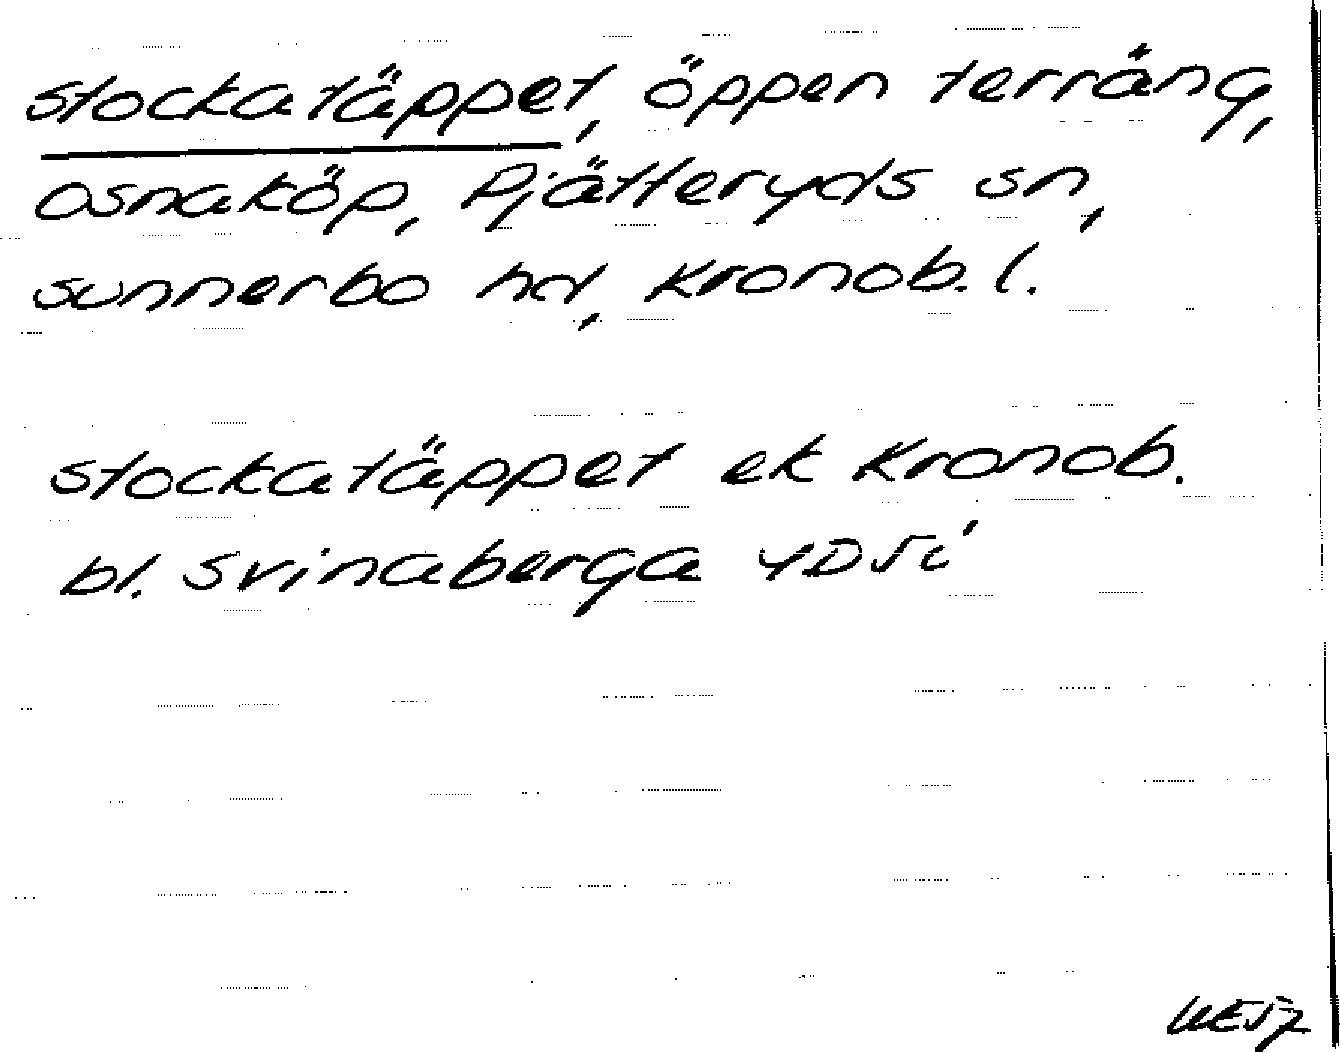 stockatäppet, öppen terräng,
osnaköp, Pjätteryds sn,
sunnerbo hd, Kronob. l.
stockatäppet ek Kronob.
bl. Svinaberga